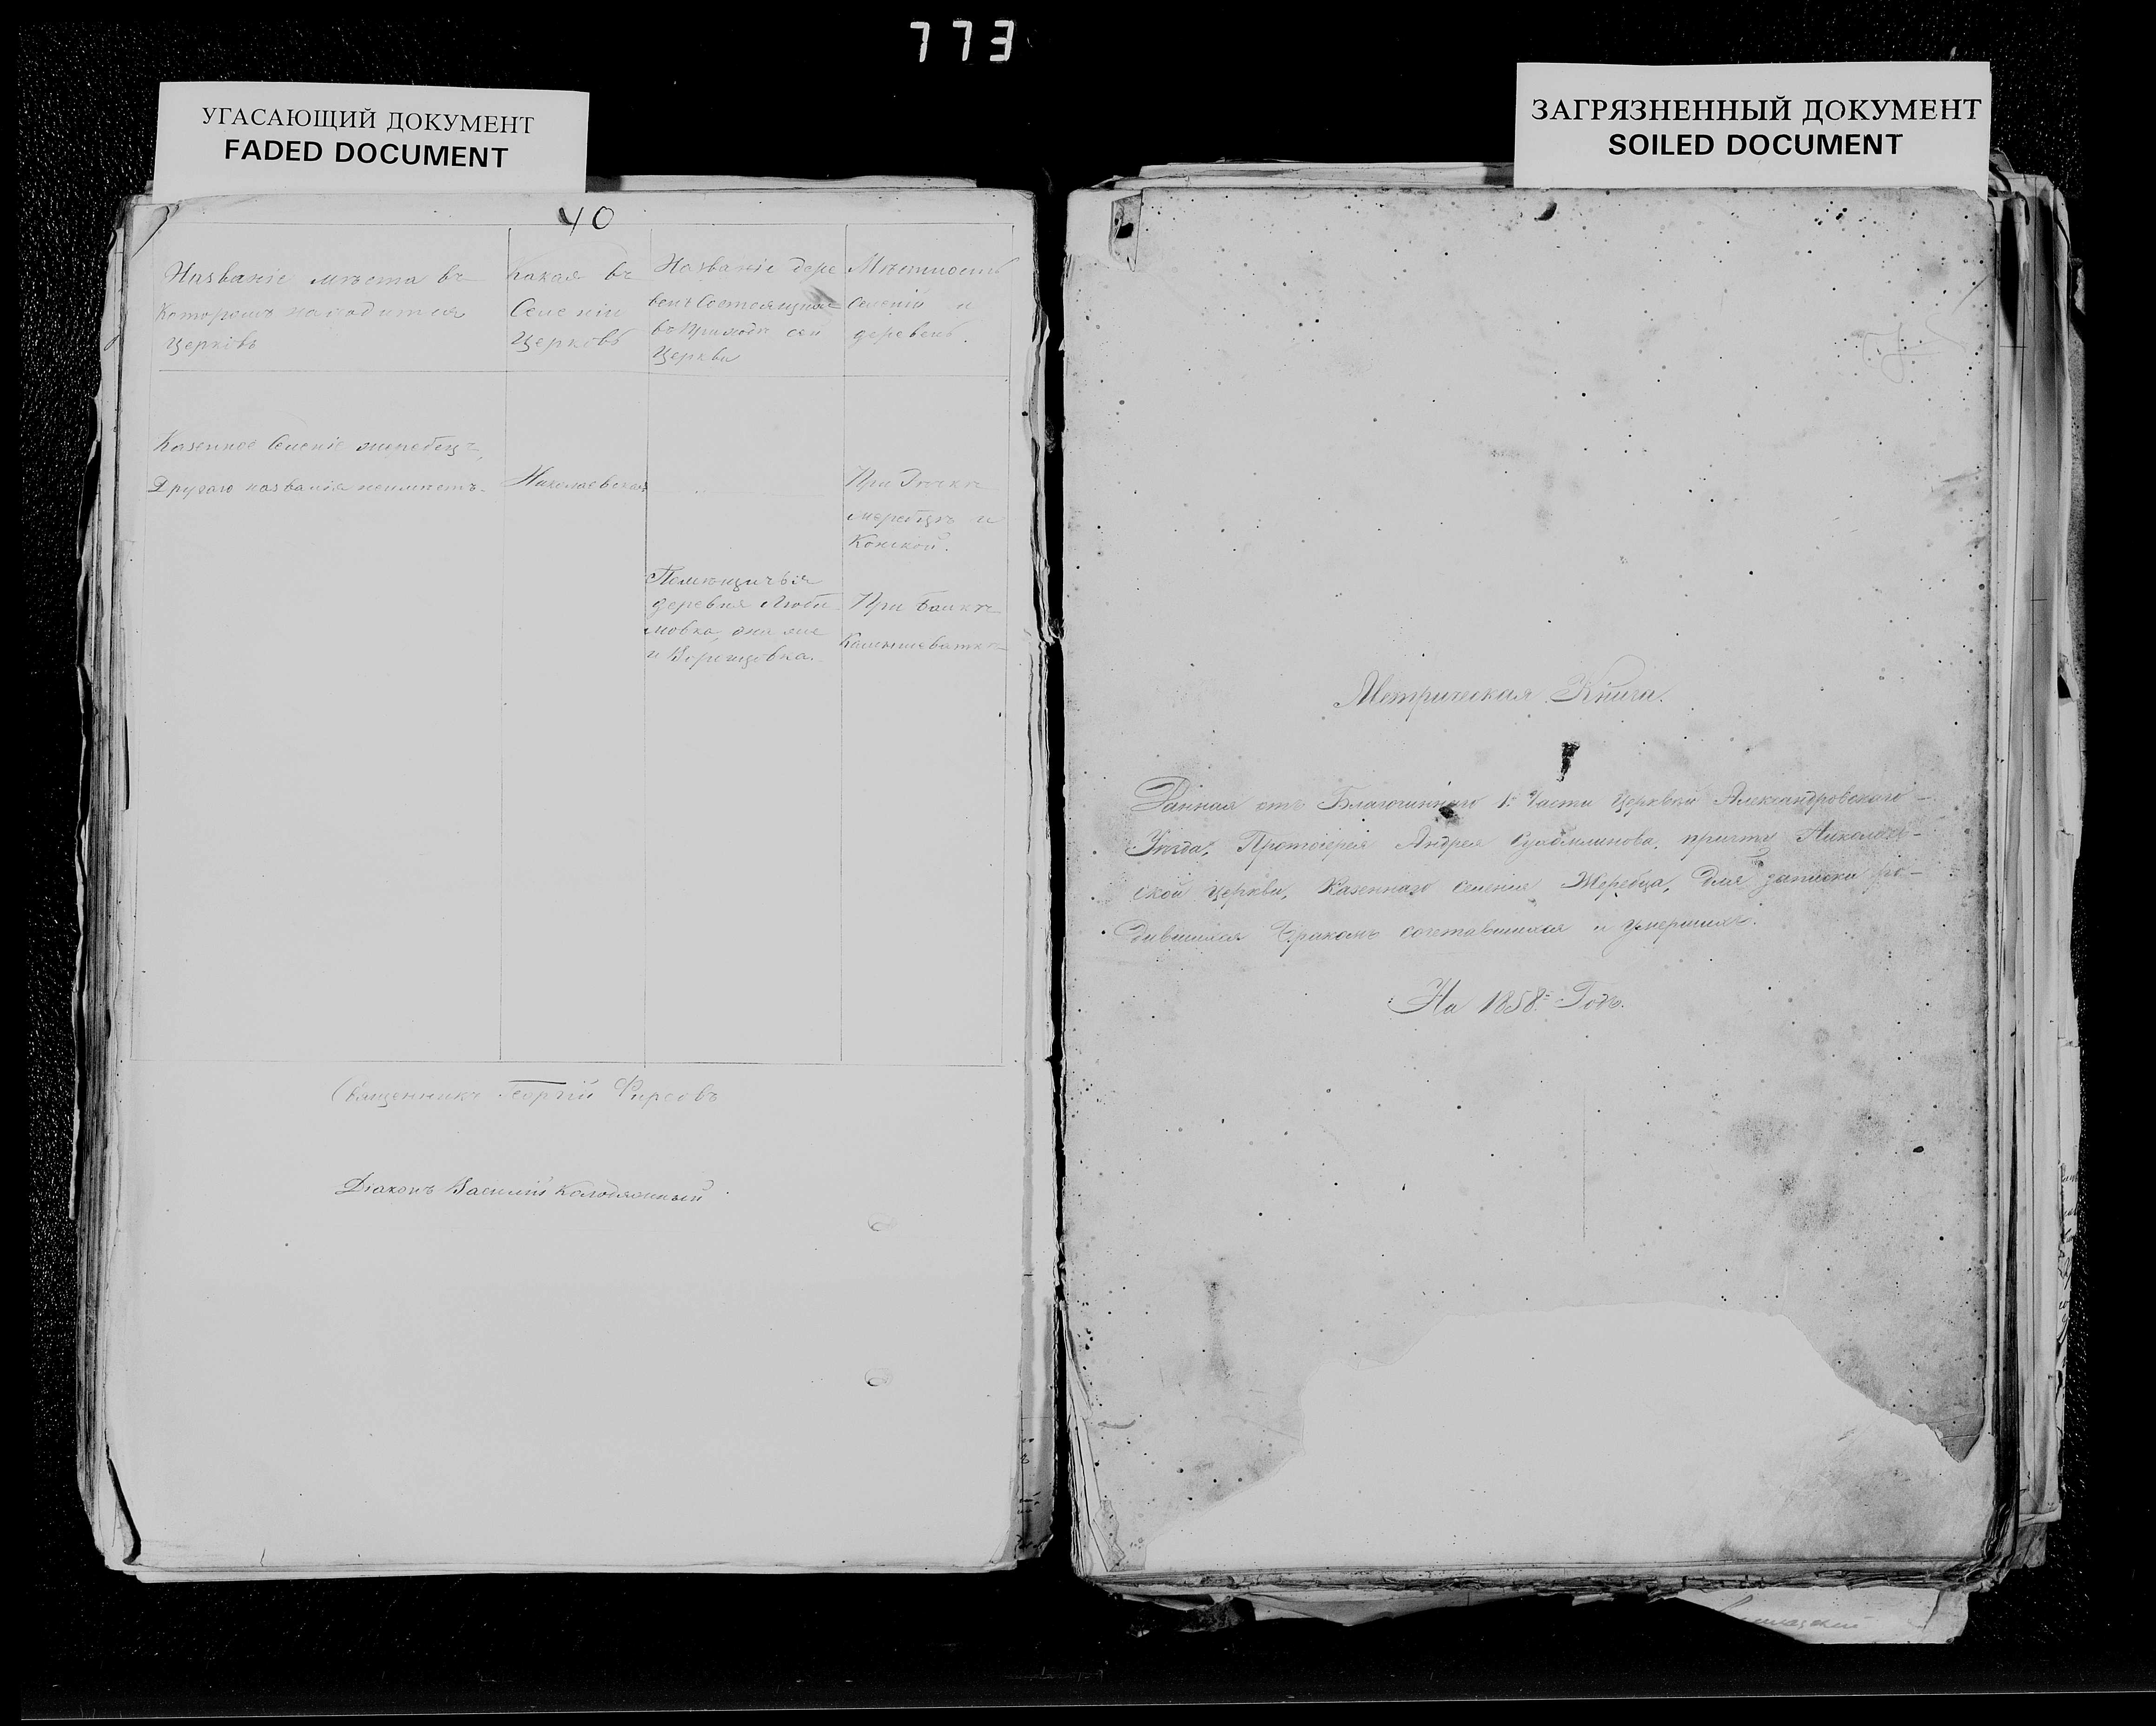 773
УГАСАЮЩИЙ ДОКУМЕНТ
FADED DOCUMENT
ЗАГРЯЗНЕННЫЙ ДОКУМЕНТ
SOILED DOCUMENT
40
Названіе мѣста въ
которомъ находится
Церковь
Какая въ
Селеніи
Церковь
Названіе дере
вень состоящихъ
въ приходѣ сей
Церкви
Мѣстность
селеній и
деревень.
Казенное Селеніе жеребецъ,
Другаго названія неимѣетъ.
Николаевская
При Рѣчкѣ
жеребцѣ и
Конской.
Помѣщичья
деревня Люби
мовка, она же
и Борещовка.
При балкѣ
Камышеваткѣ
Священникъ Георгій Фирсовъ
Діаконъ Василій Колодяжный
Метрическая Книга.
Данная отъ Благочиннаго 1й Части Церквей Александровскаго
Уѣзда, Протоіерея Андрея Сухомлинова, причту Николаев-
ской церкви, Казеннаго селенія Жеребца, для записки ро-
дившихся Бракомъ сочетавшихся и умершихъ.
На 1858й Годъ.